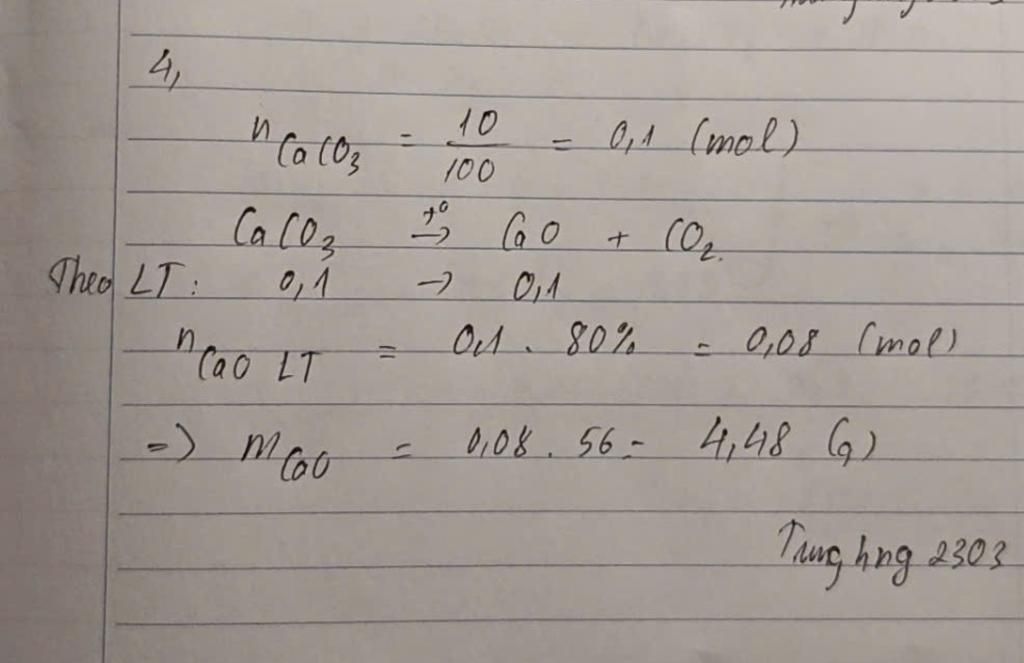 4,
n CaCO3 = 10/100 = 0,1 (mol)
CaCO3 t°→ CaO + CO2.
Theo LT: 0,1 → 0,1
n CaO LT = 0,1 . 80% = 0,08 (mol)
=> m CaO = 0,08 . 56 = 4,48 (g)
Trunghng 2303